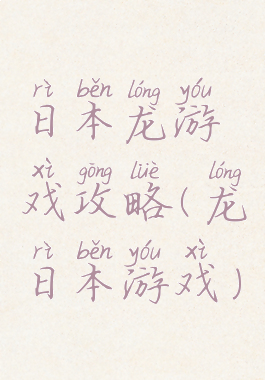 rì běn lóng yóu
日本龙游
xì gōng lüè lóng
戏攻略(龙
rì běn yóu xì
日本游戏)